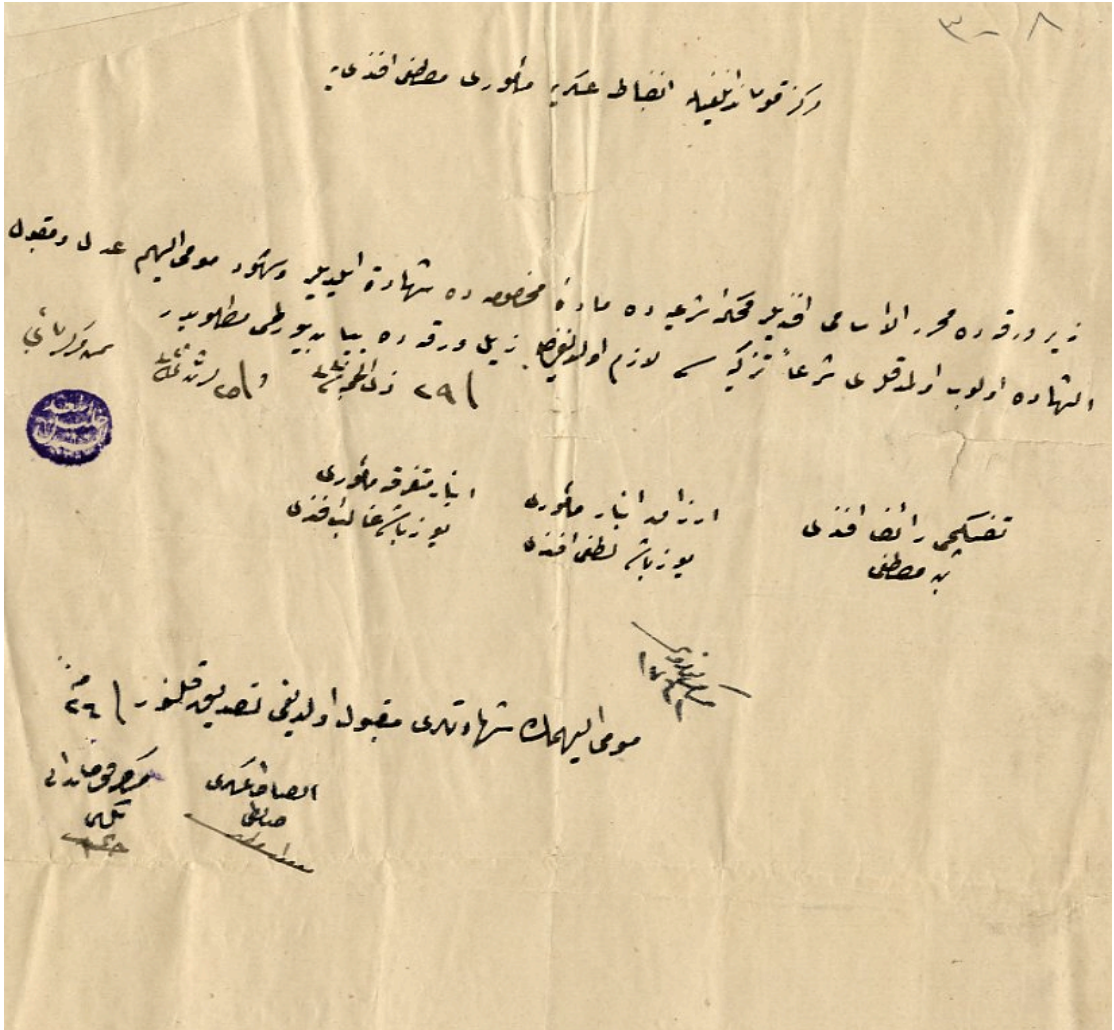 ٨ - ٣
مركز قوماندانلغنده انضباط عسكريه مأمورى مصطفى افندى يه
زير ورقه ده محرر الاسامى افنديلر محكمه شرعيه ده مادهٔ مخصوصه ده شهادة ايلديلر وشهود مومى اليهم عدل ومقبول
الشهاده اولوب اولمدقلرى شرعاً تزكيه سى لازم اولديغندن ذيل ورقه ده بيان بيورلمسى مطلوبدر
٢٩ ذى الحجه
تفنكجى رائف افندى
بن مصطفى
ارزاق انبار مأمورى
يوزباشى لطفى افندى
انبار متفرقه مأمورى
يوزباشى غالب افندى
مومى اليهمك شهادتلرى مقبول اولديغى تصديق قلنور
انضباط عسكرى
ضابطى
مركز قوماندانى
وكيلى